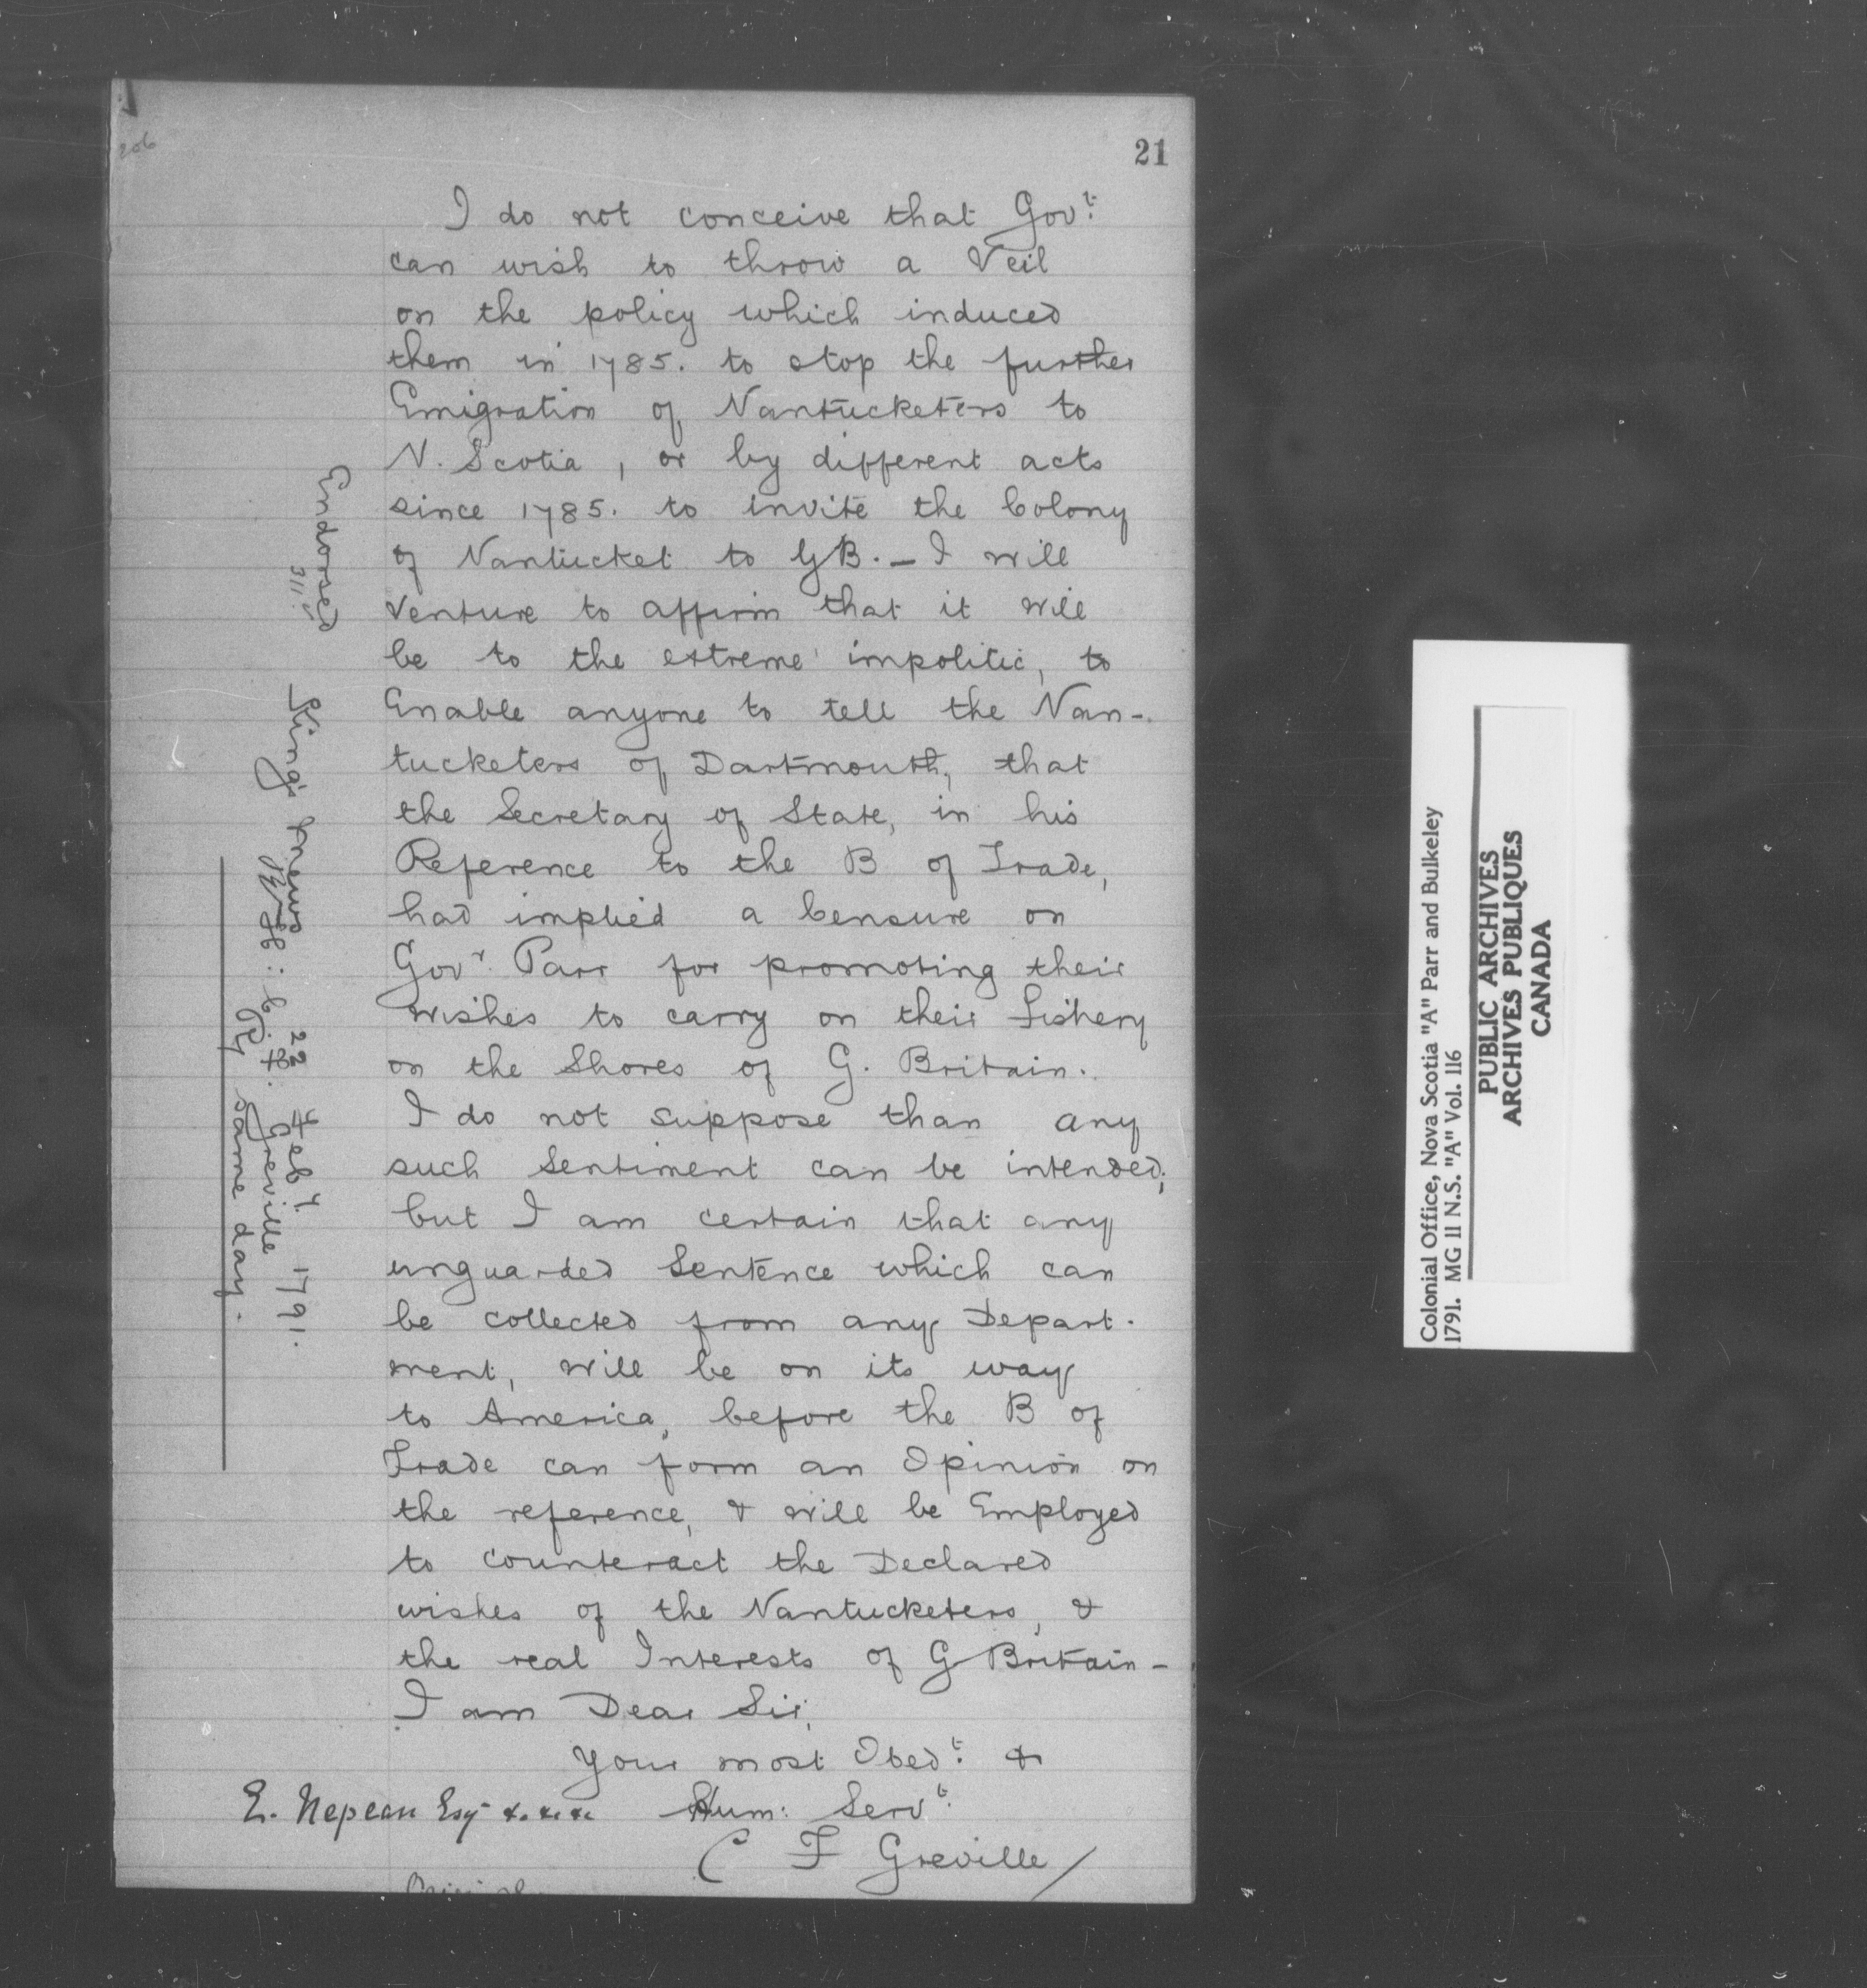 21
206
I do not conceive that Govt.
can wish to throw a Veil
on the policy which induced
them in 1785. to stop the further
Emigration of Nantucketers to
N. Scotia, or by different acts
since 1785. to invite the Colony
of Nantucket to GB. — I will
venture to affirm that it will
be to the extreme impolitic, to
Enable anyone to tell the Nan-
tucketers of Dartmouth, that
the Secretary of State, in his
Reference to the B of Trade,
had implied a Censure on
Govr. Parr for promoting their
wishes to carry on their Fishery
on the Shores of G. Britain.
I do not suppose than any
such Sentiment can be intended;
but I am certain that any
unguarded Sentence which can
be collected from any Depart-
ment, will be on its way
to America, before the B of
Trade can form an Opinion on
the reference, & will be Employed
to counteract the Declared
wishes of the Nantucketers, &
the real Interests of G Britain —
I am Dear Sir,
Your most Obedt. &
E. Nepean Esqr &.&.&. Hum: Servt.
C F Greville
Endorsed
King's Mews 22 Feby. 1791.
C. F. Greville
Rx same day.
Colonial Office, Nova Scotia "A" Parr and Bulkeley
1791. MG 11 N.S. "A" Vol. 116
PUBLIC ARCHIVES
ARCHIVES PUBLIQUES
CANADA